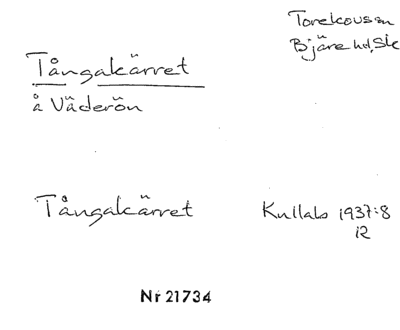 Torekovs sn
Bjäre hd, Sk
Tångakärret
å Väderön
Tångakärret
Kullabs 1937:8
12
Nr 21734